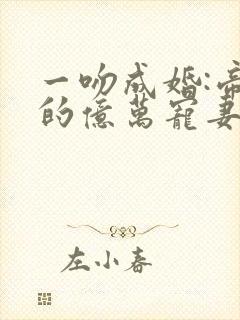 一吻成婚:帝
的億萬寵妻
左小春